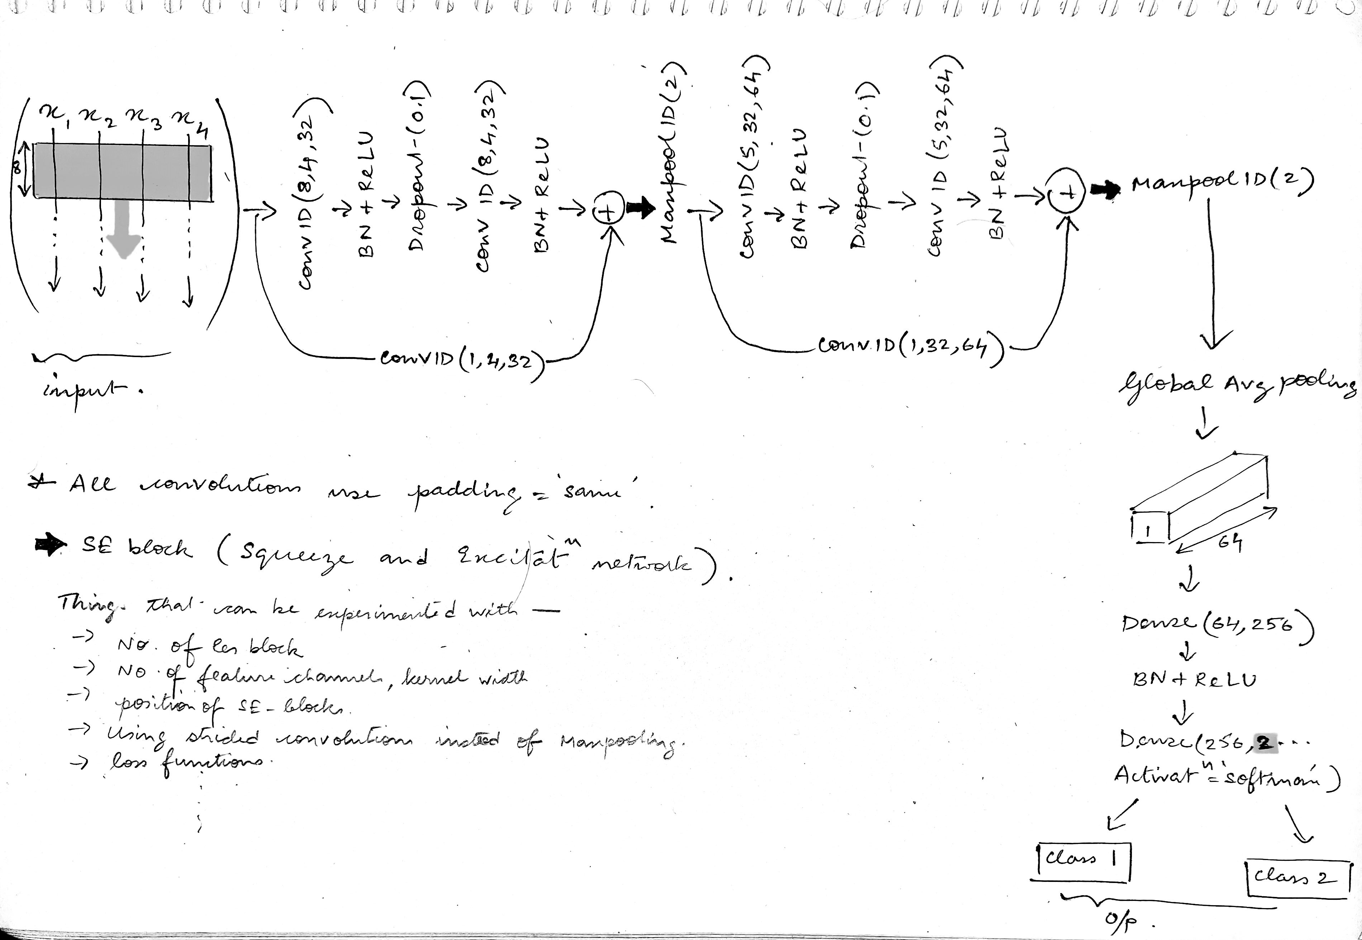 x1 x2 x3 x4
8
input.
Conv1D(8,4,32)
BN+ReLU
Dropout-(0.1)
Conv1D(8,4,32)
BN+ReLU
+
Maxpool1D(2)
Conv1D(1,4,32)
Conv1D(5,32,64)
BN+ReLU
Dropout-(0.1)
Conv1D(5,32,64)
BN+ReLU
+
Maxpool1D(2)
Conv1D(1,32,64)
Global Avg pooling
1
64
Dense(64,256)
BN+ReLU
Dense(256,2...
Activatn='softmax')
Class 1
Class 2
O/P.
* All convolutions use padding='same'.
➡ SE block (Squeeze and Excitatn network).
Things that can be experimented with —
→ No. of Res block
→ No. of feature channels, kernel width
→ position of SE-blocks.
→ Using strided convolutions instead of Maxpooling.
→ loss functions.